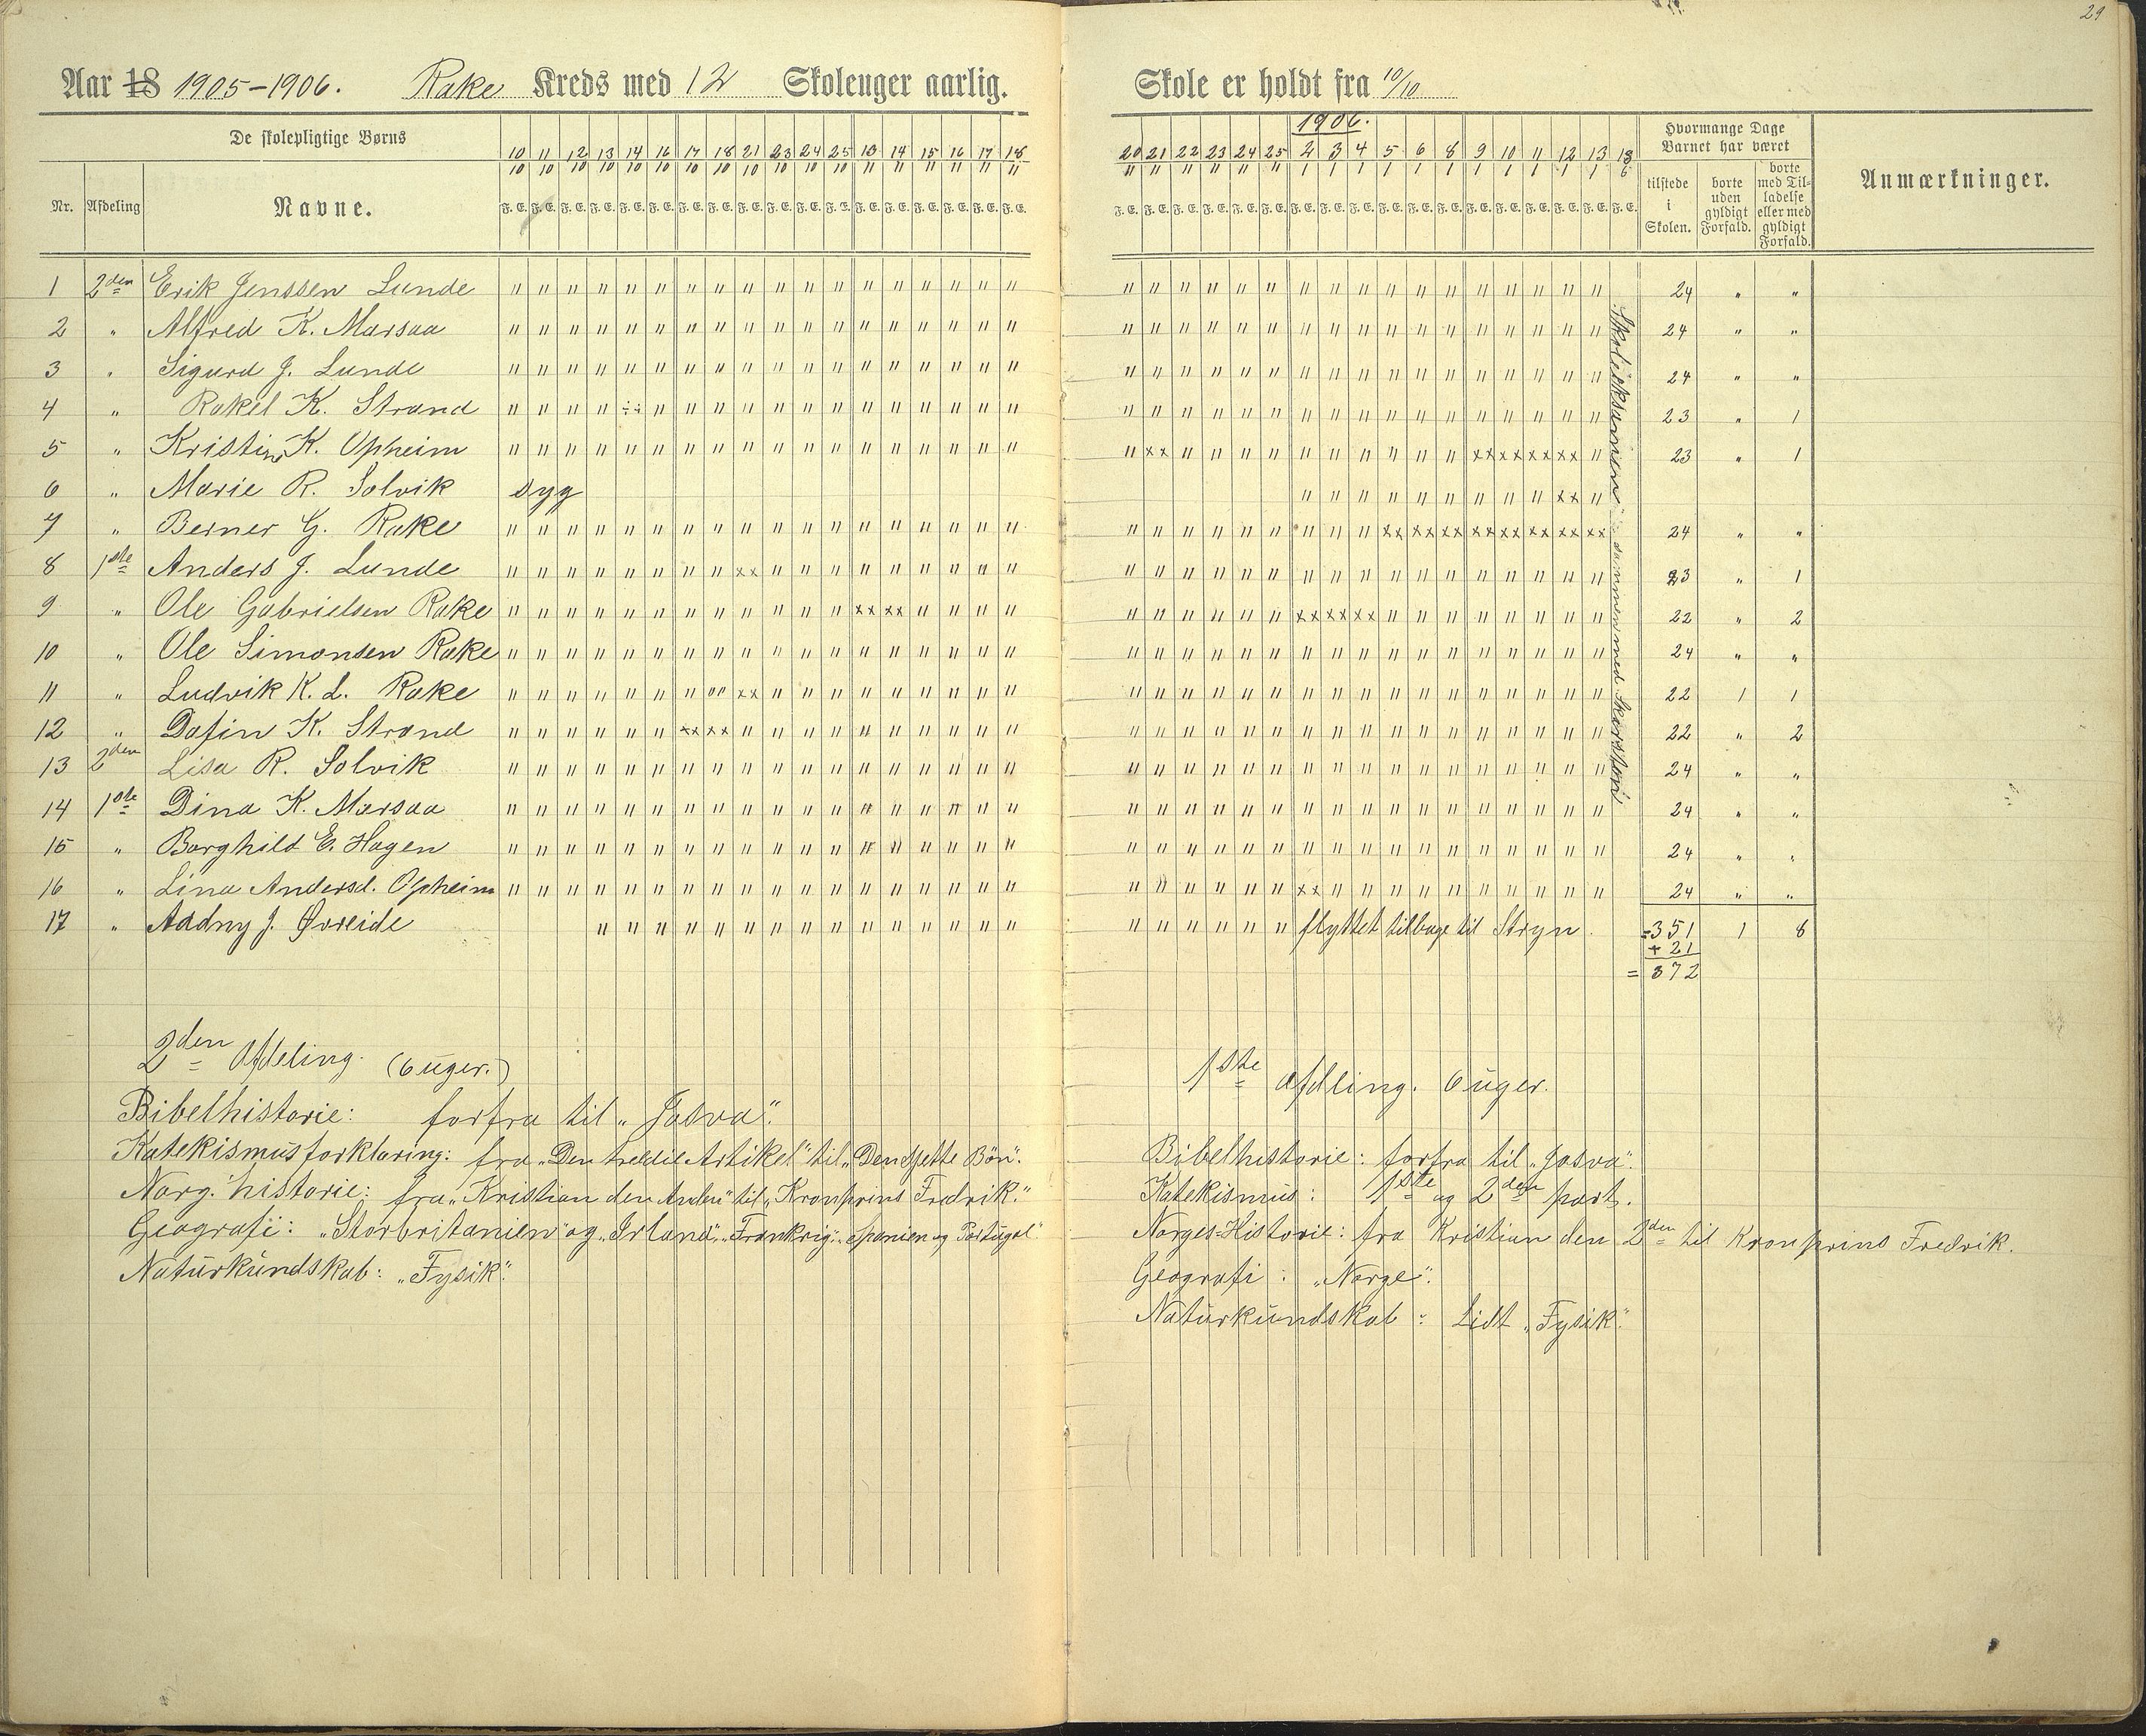 29
Aar 18 1905-1906. Rake Kreds med 12 Skoleuger aarlig.
De skolepligtige Børns
Nr. Afdeling Navne.
10 11 12 13 14 16 17 18 21 23 24 25 13 14 15 16 17 18
10 10 10 10 10 10 10 10 10 10 10 10 11 11 11 11 11 11
F. E. F. E. F. E. F. E. F. E. F. E. F. E. F. E. F. E. F. E. F. E. F. E. F. E. F. E. F. E. F. E. F. E. F. E.
1 2den Erik Jenssen Lunde
2 " Alfred K. Marsaa
3 " Sigurd J. Lunde
4 " Rakel K. Strand
5 " Kristine K. Opheim
6 " Marie R. Solvik syg
7 " Berner G. Rake
8 1ste Anders J. Lunde
9 " Ole Gabrielsen Rake
10 " Ole Simonsen Rake
11 " Ludvik K. L. Rake
12 " Dafin K. Strand
13 2den Lisa R. Solvik
14 1ste Dina K. Marsaa
15 " Borghild E. Hagen
16 " Lina Andersd. Opheim
17 " Aadny J. Øvreide
2den Afdeling. (6 uger.)
Bibelhistorie: forfra til "Josva".
Katekismusforklaring: fra "Den tredie Artikel" til "Den sjette Bøn".
Norg. historie: fra "Kristian den Anden" til "Kronprins Fredrik."
Geografi: "Storbritanien" og "Irland", "Frankrig", "Spanien og Portugal".
Naturkundskab: "Fysik".
Skole er holdt fra 10/10
1906.
20 21 22 23 24 25 2 3 4 5 6 8 9 10 11 12 13 18
11 11 11 11 11 11 1 1 1 1 1 1 1 1 1 1 1 6
F. E. F. E. F. E. F. E. F. E. F. E. F. E. F. E. F. E. F. E. F. E. F. E. F. E. F. E. F. E. F. E. F. E. F. E.
Hvormange Dage Barnet har været
tilstede i Skolen.
borte uden gyldigt Forfald.
borte med Tilladelse eller med gyldigt Forfald.
Anmærkninger.
24 " "
24 " "
24 " "
23 " 1
23 " 1
24 " "
23 " 1
22 " 2
24 " "
22 1 1
22 " 2
24 " "
24 " "
24 " "
24 " "
flyttet tilbage til Stryn. =351 1 8
+ 21
= 372
Skoleeksamen sammen med
1ste Afdling. 6 uger.
Bibelhistorie: forfra til "Josva".
Katekismus: 1ste og 2den part.
Norges-Historie: fra Kristian den 2den til Kronprins Fredrik.
Geografi: "Norge".
Naturkundskab: Lidt "Fysik".